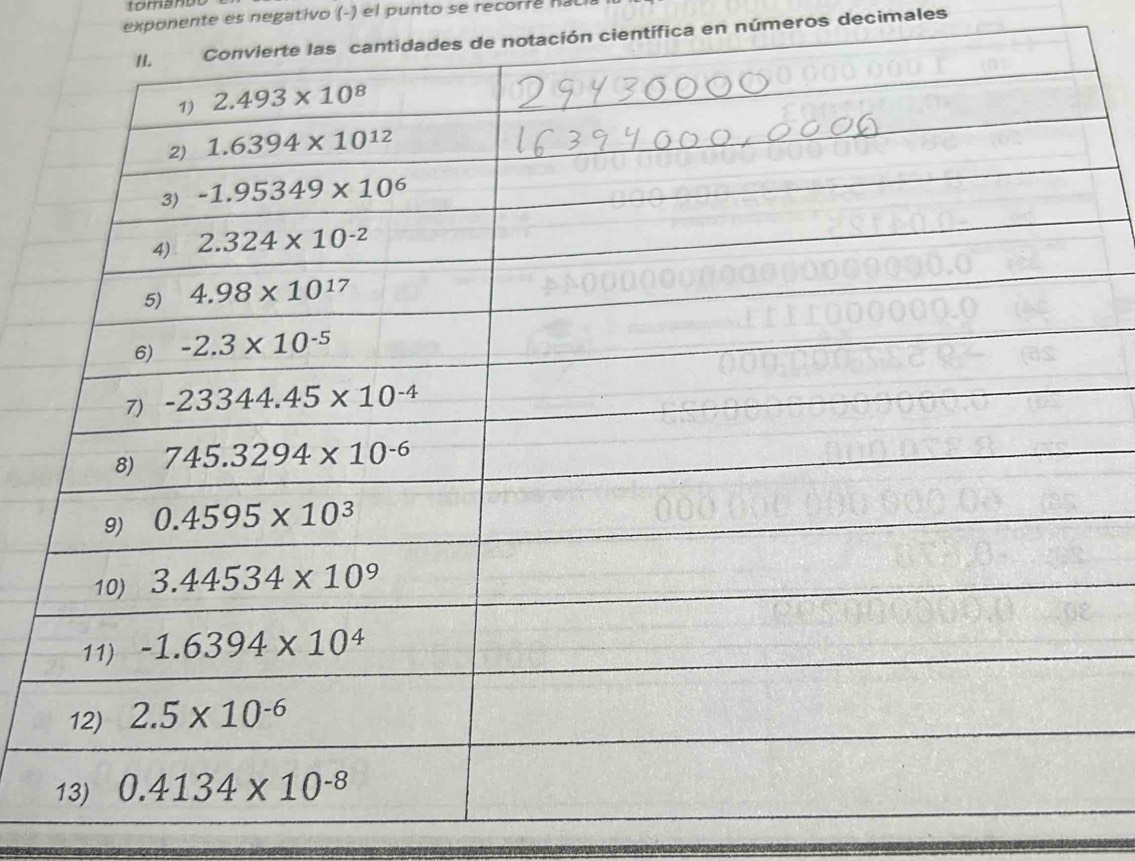 exponente es negativo (-) el punto se recorre
II. Convierte las cantidades de notación científica en números decimales
1) 2.493 x 10⁸ 29430000
2) 1.6394 x 10¹² 16394000,0000
3) -1.95349 x 10⁶
4) 2.324 x 10⁻²
5) 4.98 x 10¹⁷
6) -2.3 x 10⁻⁵
7) -23344.45 x 10⁻⁴
8) 745.3294 x 10⁻⁶
9) 0.4595 x 10³
10) 3.44534 x 10⁹
11) -1.6394 x 10⁴
12) 2.5 x 10⁻⁶
13) 0.4134 x 10⁻⁸